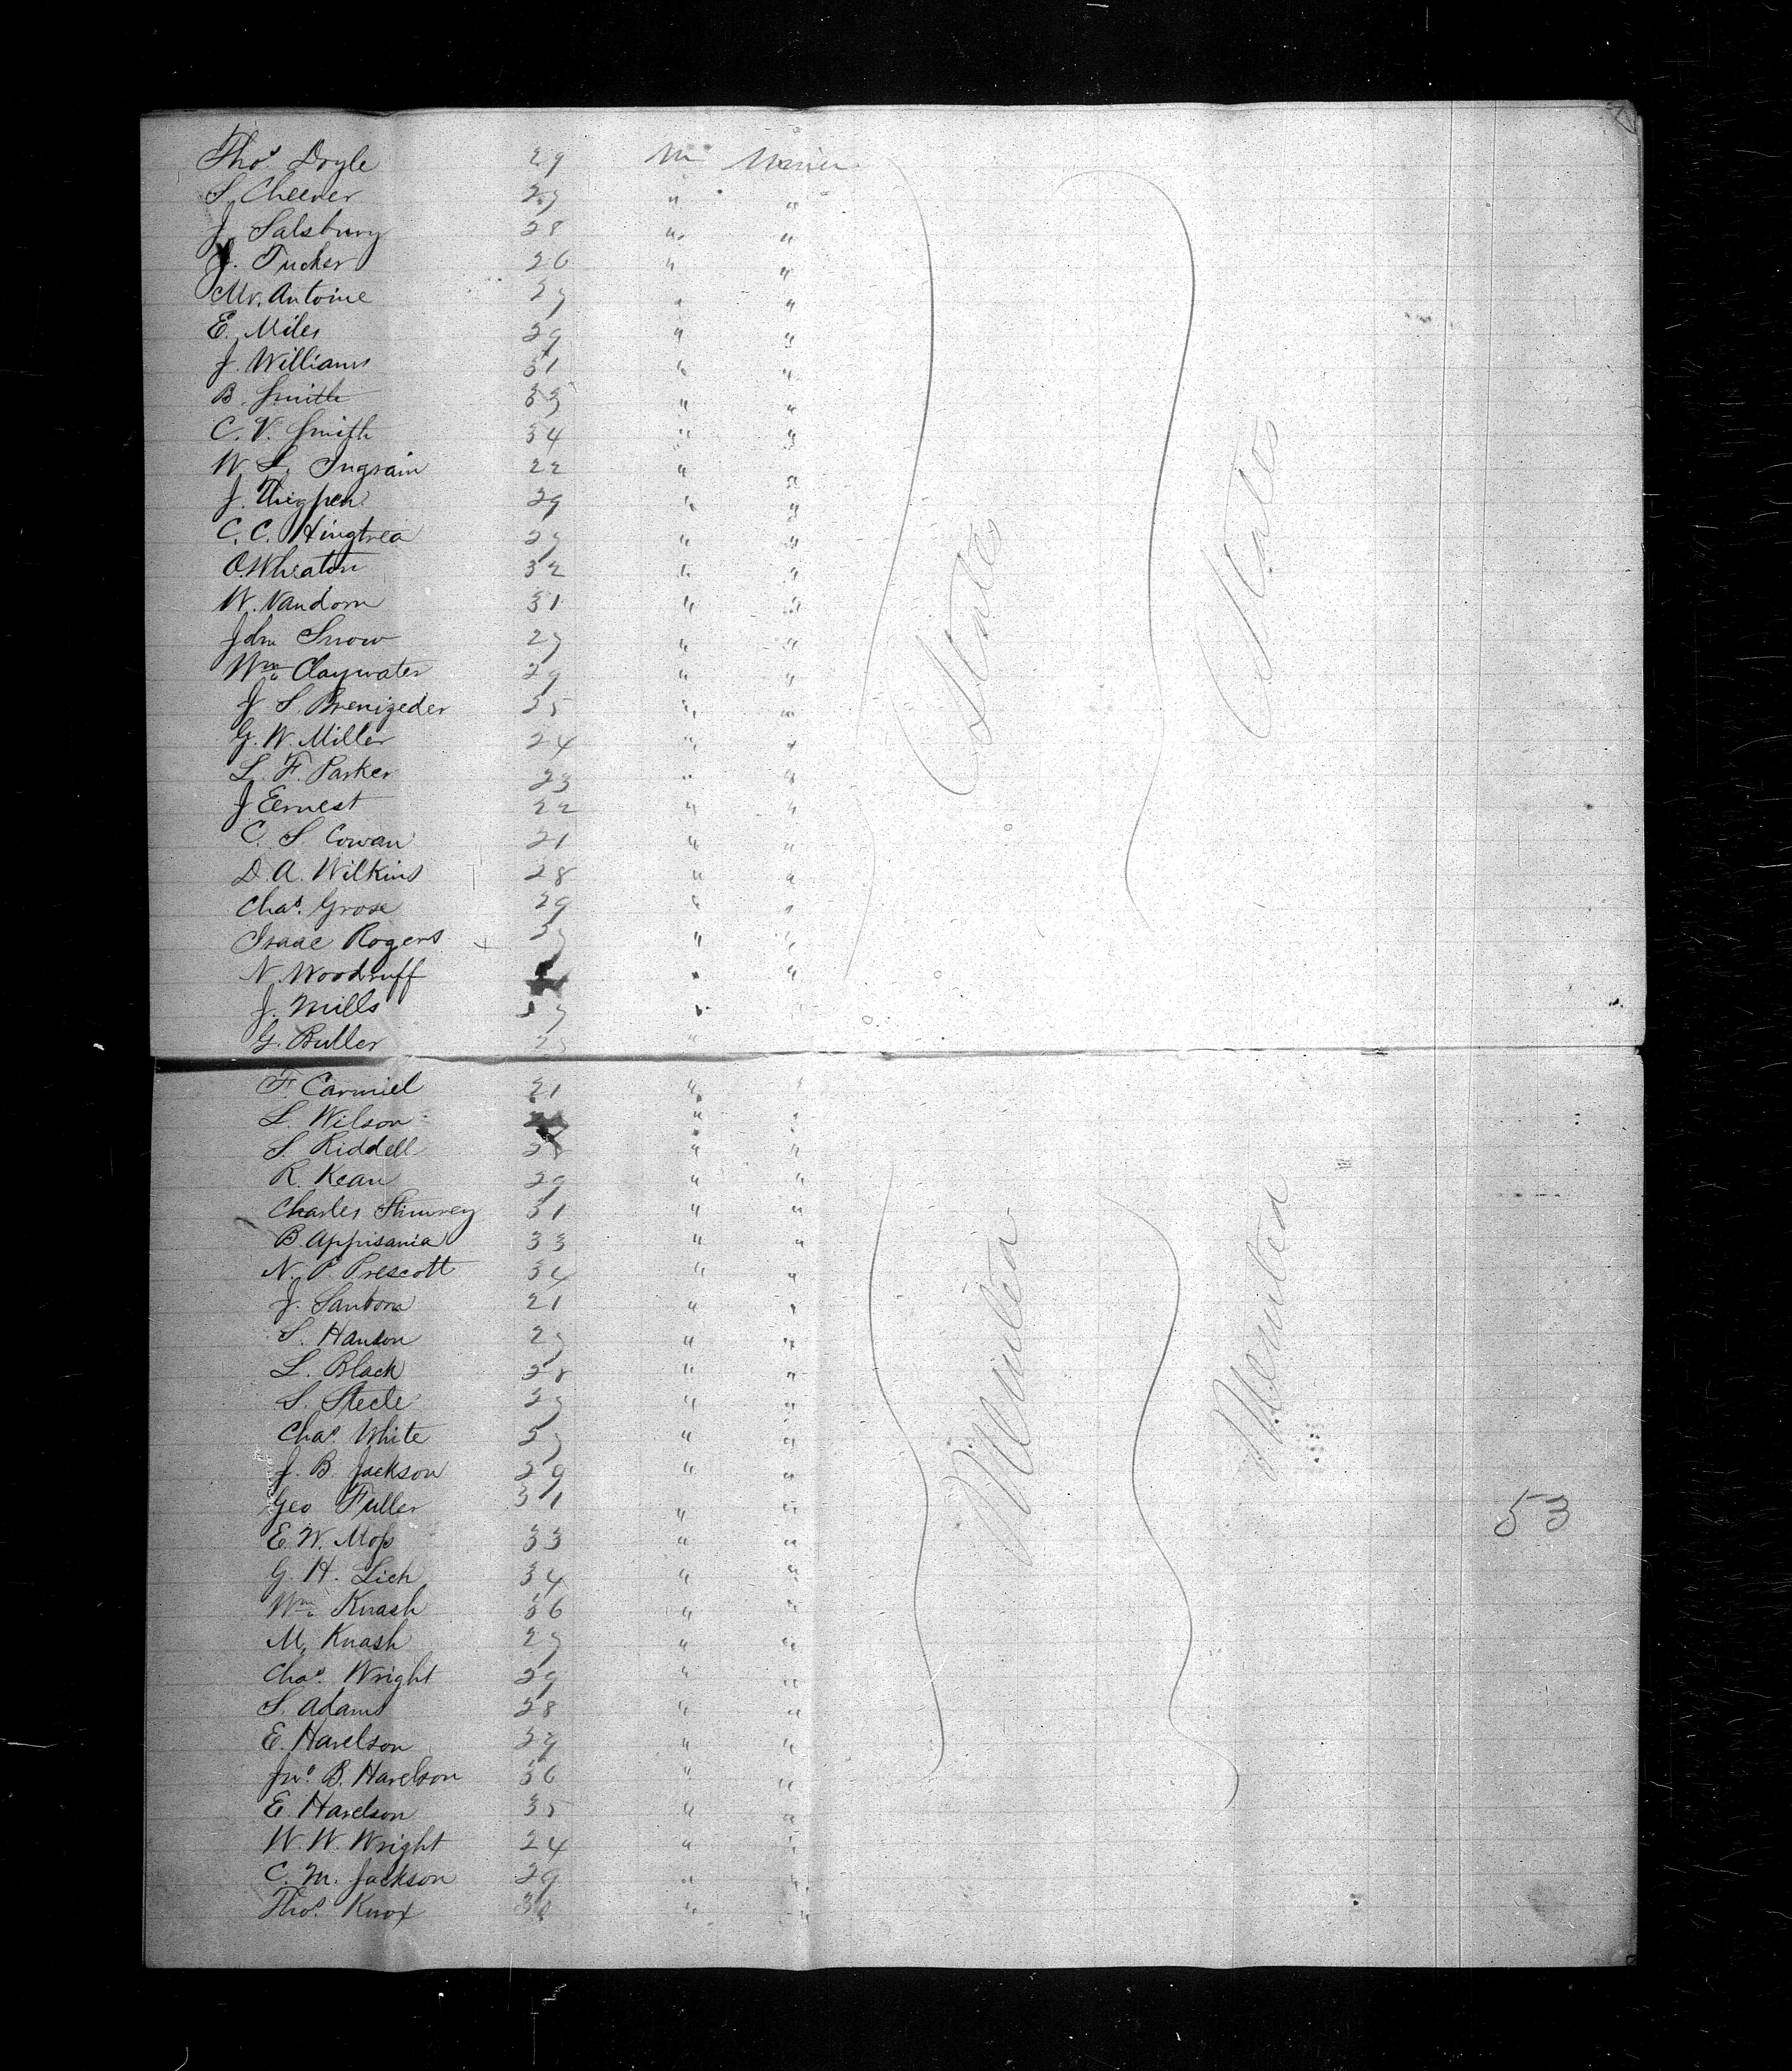 Thos Doyle 29 M Miner
S. Cheever 27 " "
J. Salsbury 28 " "
J. Tucker 26 " "
Mr. Antoine 27 " "
E. Miles 29 " "
J. Williams 31 " "
B. Smith 33 " "
C. V. Smith 34 " "
W. L. Ingraim 22 " "
J. Thigpen 29 " "
C. C. Hingtrea 27 " "
O. Wheaton 32 " "
W. Vandorn 31 " "
John Snow 27 " "
Wm Claywater 29 " "
J S. Brenizeder 25 " "
G. W. Miller 24 " "
L. F. Parker 23 " "
J Eernest 22 " "
C. S Cowan 21 " "
D. A. Wilkins 28 " "
Chas. Grose 29 " "
Isaac Rogers " "
N. Woodruff " "
J. Mills " "
G. Buller " 
States States
F. Carmiel 21 " "
L. Wilson " "
S. Riddell " "
R. Kean 29 " "
Charles 31 " "
B. Appisania 33 " "
N. P. Prescott 34 " "
J. Sanborn 21 " "
S. Hanson 27 " "
L. Black 28 " "
S. Steele 27 " "
Chas White 37 " "
J. B. Jackson 29 " "
Geo Fuller 31 " "
E. W. Moss 33 " "
G. H. Lich 34 " "
Wm Knash 36 " "
M. Knash 27 " "
Chas. Wright 29 " "
S. Adams 28 " "
E. Harelson 29 " "
Jno. B. Harelson 36 " "
E. Harelson 35 " "
W. W. Wright 24 " "
C. M. Jackson 29 " "
Thos. Knox " "
53